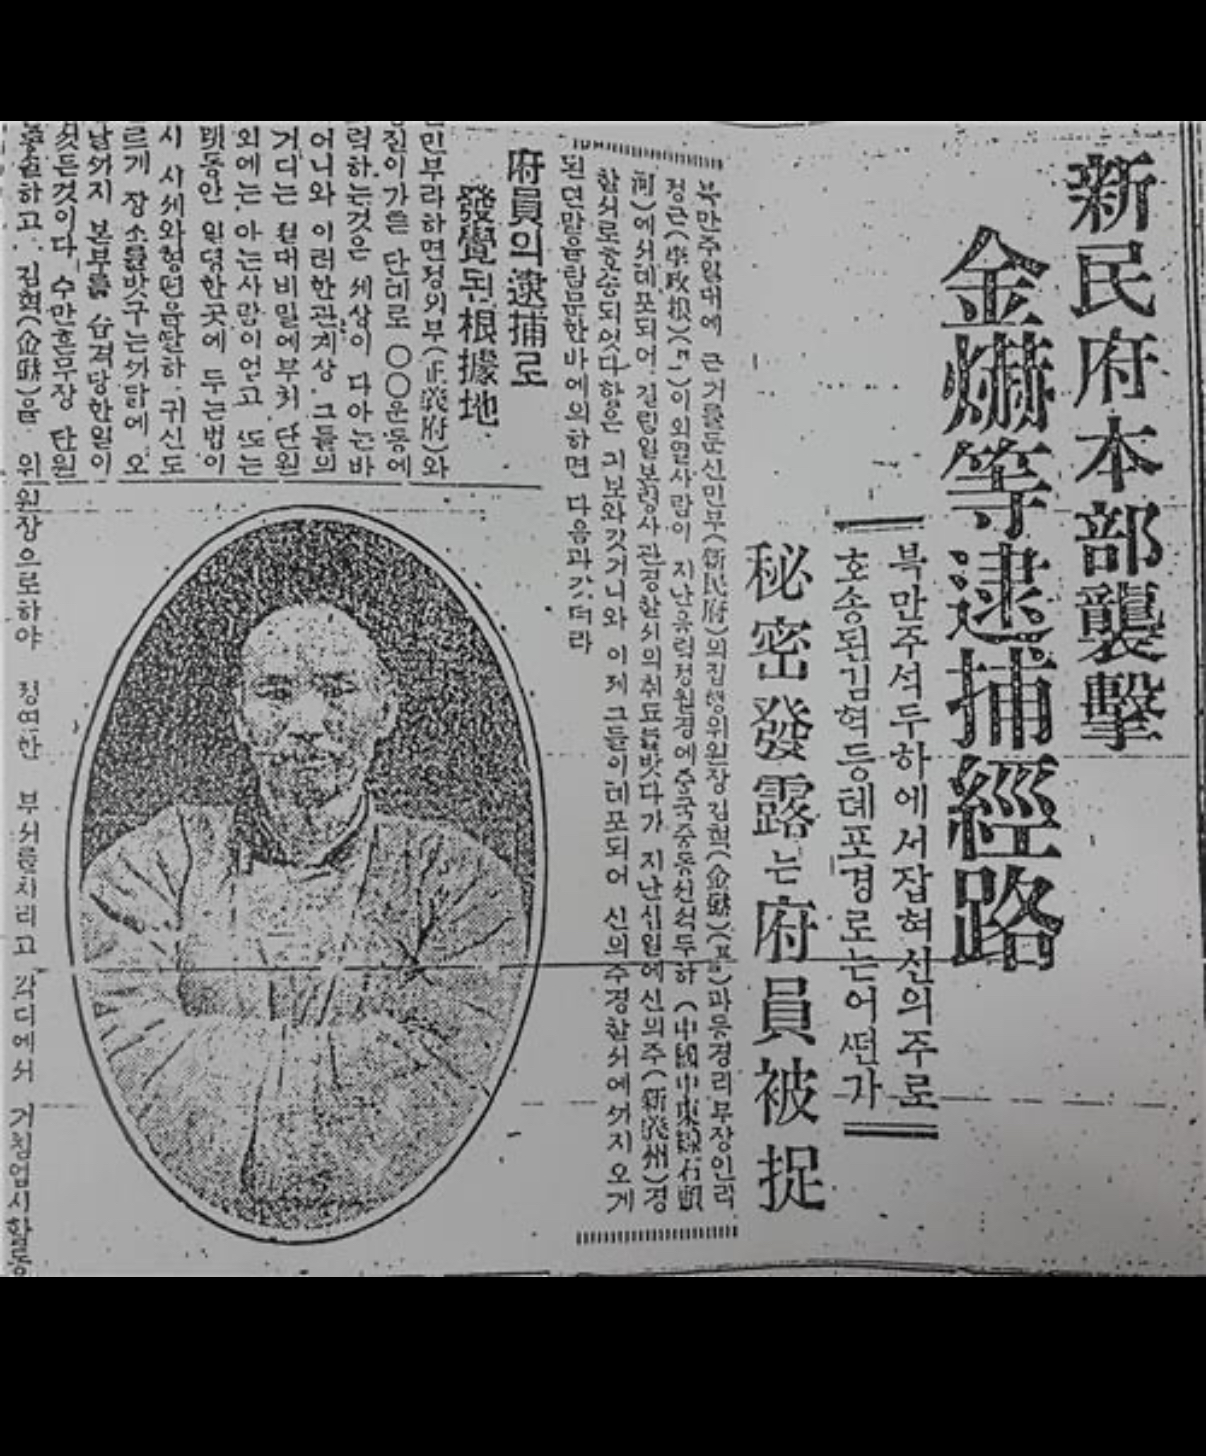 新民府本部襲擊
金爀等逮捕經路
북만주석두하에서잡혀신의주로
호송된김혁등톄포경로는어떤가
秘密發露는府員被捉
북만주일대에 근거를둔신민부(新民府)의집행위원장 김혁(金爀)과동경리부장인리
정근(李政根)이외열사람이 지난음력정월경에중국중동선석두하 (中國中東線石頭
河)에서톄포되어 길림일본령사관경찰서의취됴를밧다가 지난십일에신의주(新義州)경
찰서로호송되엿다함은 긔보와갓거니와 이제 그들이톄포되어 신의주경찰서에까지 오게
된연말을탐문한바에의하면 다음과갓더라
府員의逮捕로
發覺된根據地
민부라하면정의부(正義府)와
가튼 단톄로 〇〇운동에
력하는것은 세상이 다아는바
어니와 이러한관계상 그들의
거디는 절대비밀에부쳐 단원
외에는 아는사람이업고 또는
동안 일뎡한곳에 두는법이
시 시세와형편을딸하 귀신도
르게 장소를밧구는까닭에 오
날까지 본부를 습격당한일이
것든것이다 수만흔무장 단원
하고 김혁(金爀)을 위원장으로하야 정연한 부서를차리고 각디에서